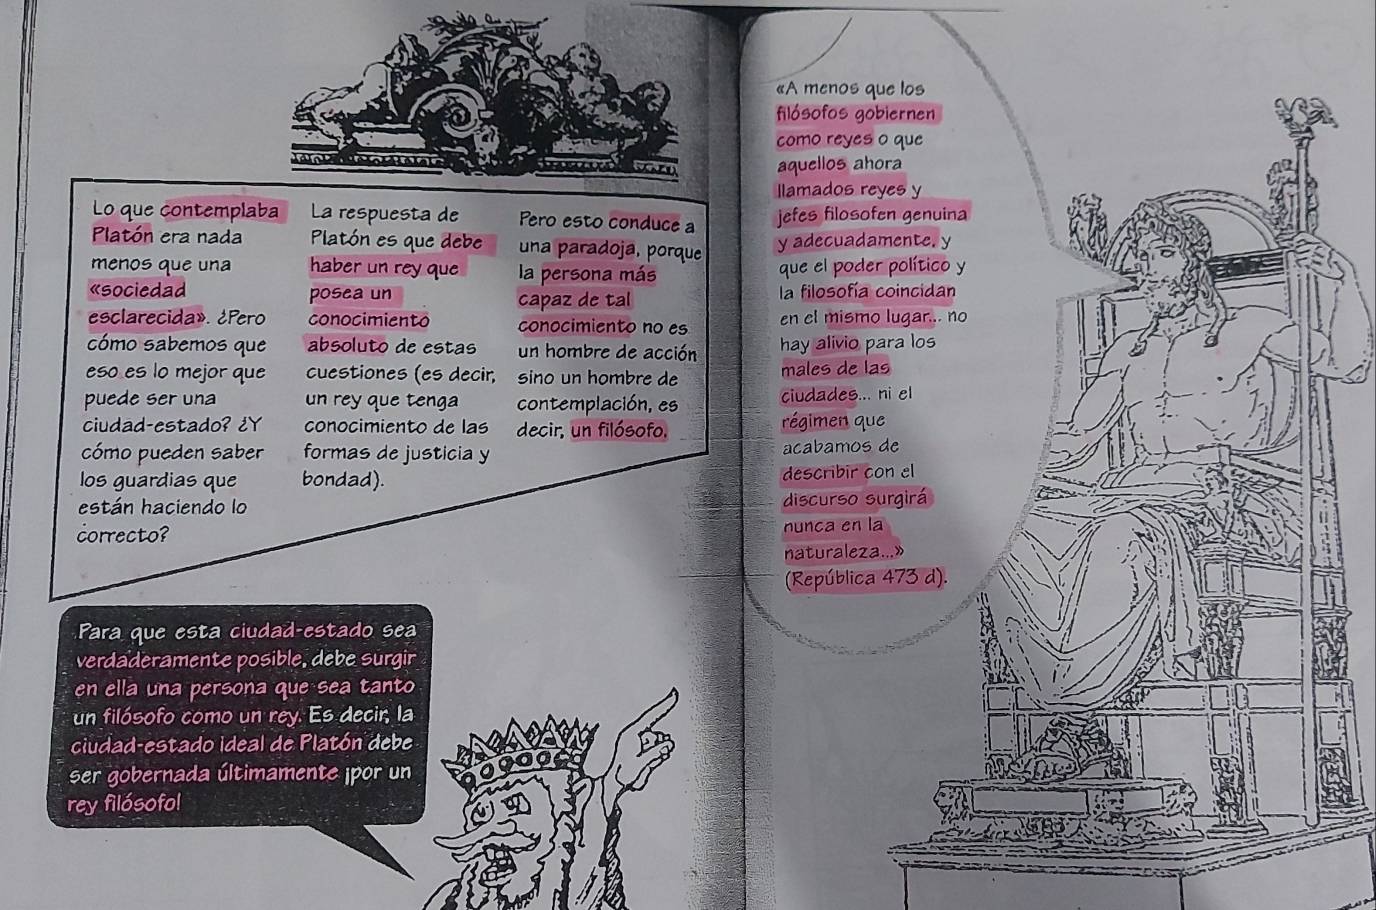 Lo que contemplaba
Platón era nada
menos que una
«sociedad
esclarecida». ¿Pero
cómo sabemos que
eso es lo mejor que
puede ser una
ciudad-estado? ¿Y
cómo pueden saber
los guardias que
están haciendo lo
correcto?
La respuesta de
Platón es que debe
haber un rey que
posea un
conocimiento
absoluto de estas
cuestiones (es decir,
un rey que tenga
conocimiento de las
formas de justicia y
bondad).
Pero esto conduce a
una paradoja, porque
la persona más
capaz de tal
conocimiento no es
un hombre de acción
sino un hombre de
contemplación, es
decir, un filósofo.
Para que esta ciudad-estado sea
verdaderamente posible, debe surgir
en ella una persona que sea tanto
un filósofo como un rey. Es decir, la
ciudad-estado ideal de Platón debe
ser gobernada últimamente ¡por un
rey filósofo!
«A menos que los
filósofos gobiernen
como reyes o que
aquellos ahora
llamados reyes y
jefes filosofen genuina
y adecuadamente, y
que el poder político y
la filosofía coincidan
en el mismo lugar... no
hay alivio para los
males de las
ciudades... ni el
régimen que
acabamos de
describir con el
discurso surgirá
nunca en la
naturaleza...»
(República 473 d).